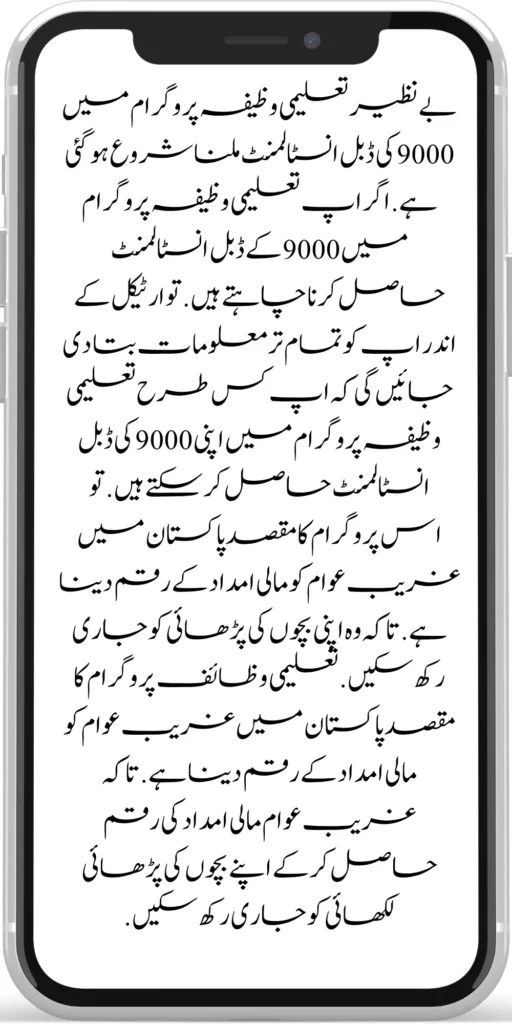 بے نظیر تعلیمی وظیفہ پروگرام میں
9000 کی ڈبل انسٹالمنٹ ملنا شروع ہو گئی
ہے. اگر اپ تعلیمی وظیفہ پروگرام
میں 9000 کے ڈبل انسٹالمنٹ
حاصل کرنا چاہتے ہیں. تو ارٹیکل کے
اندر اپ کو تمام تر معلومات بتا دی
جائیں گی کہ اپ کس طرح تعلیمی
وظیفہ پروگرام میں اپنی 9000 کی ڈبل
انسٹالمنٹ حاصل کر سکتے ہیں. تو
اس پروگرام کا مقصد پاکستان میں
غریب عوام کو مالی امداد کے رقم دینا
ہے. تاکہ وہ اپنی بچوں کی پڑھائی کو جاری
رکھ سکیں. تعلیمی وظائف پروگرام کا
مقصد پاکستان میں غریب عوام کو
مالی امداد کے رقم دینا ہے. تاکہ
غریب عوام مالی امداد کی رقم
حاصل کر کے اپنے بچوں کی پڑھائی
لکھائی کو جاری رکھ سکیں.